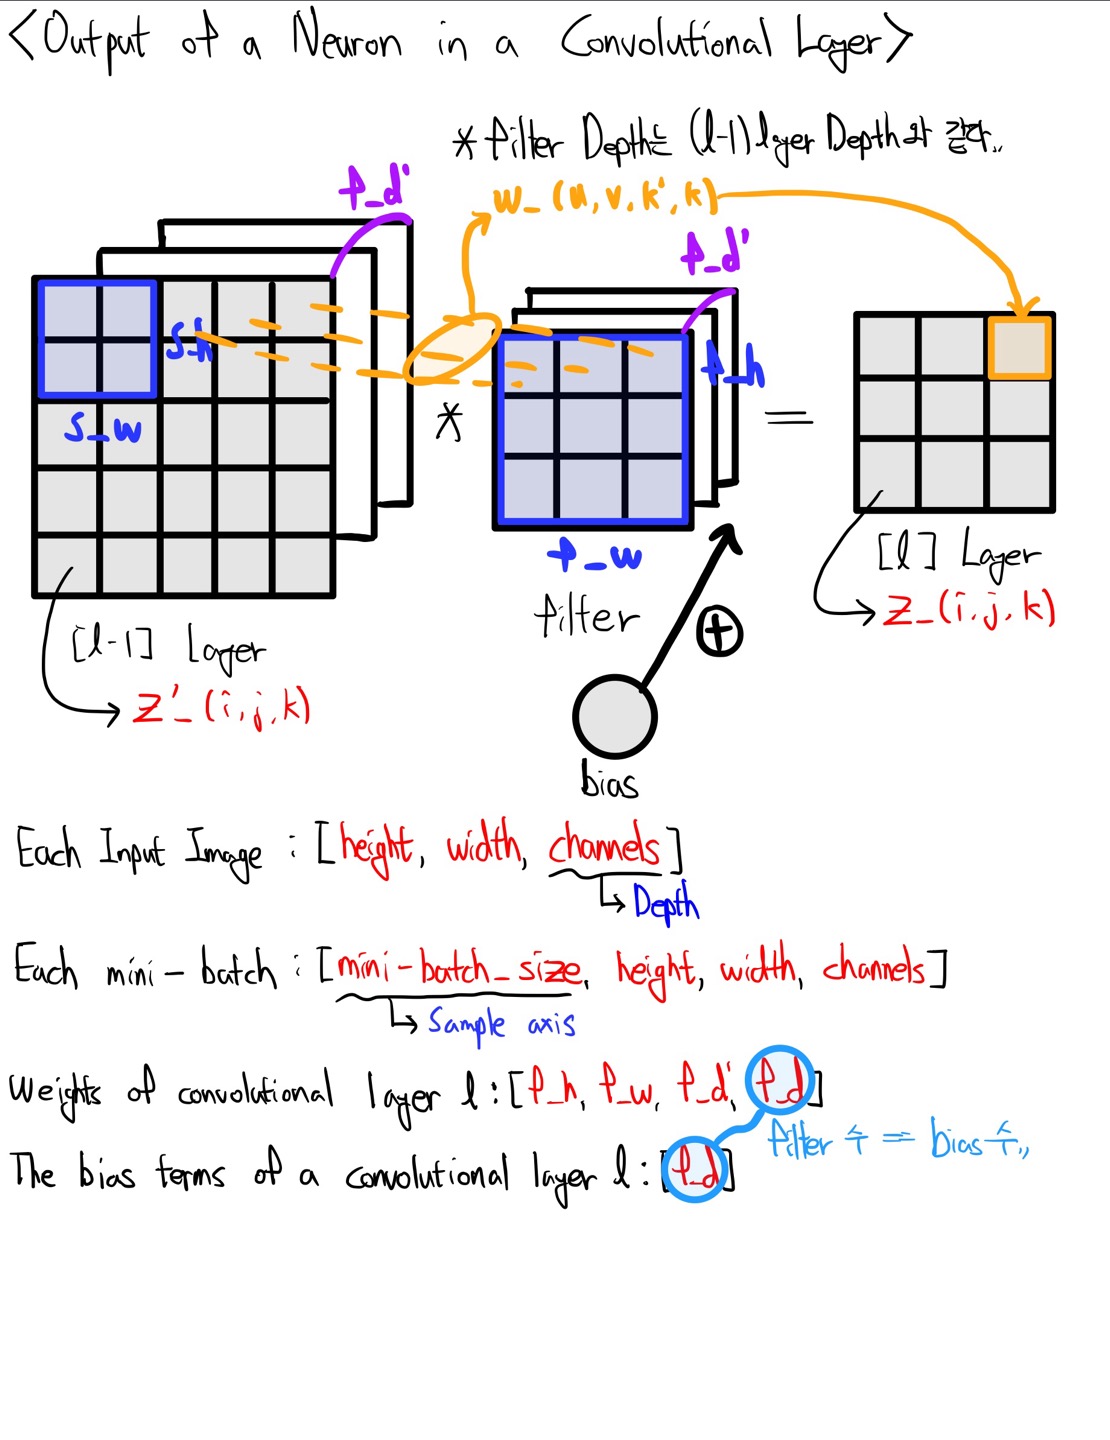 <Output of a Neuron in a Convolutional Layer>
* filter Depth는 (l-1) layer Depth와 같다.,
f_d'
w_(u, v, k', k)
f_d'
s_h
f_h
s_w
*
=
f_w
[l] Layer
filter
z_(i, j, k)
+
[l-1] Layer
z'_(i, j, k)
bias
Each Input Image : [height, width, channels]
↳ Depth
Each mini-batch : [mini-batch_size, height, width, channels]
↳ Sample axis
Weights of convolutional layer l : [f_h, f_w, f_d', f_d]
filter 수 = bias 수.,
The bias terms of a convolutional layer l : [f_d]